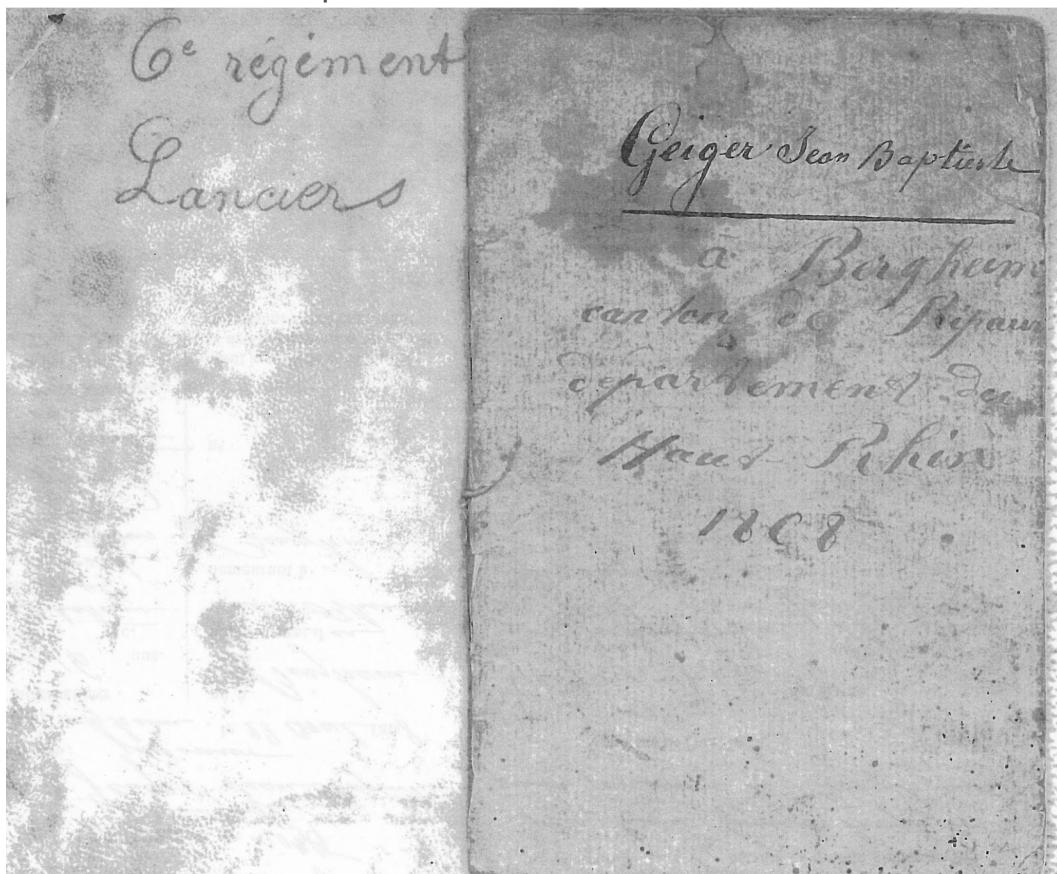 6e régiment
Lanciers
Geiger Jean Baptiste
à Bergheim
canton de Ripau
département du
Haut Rhin
1868